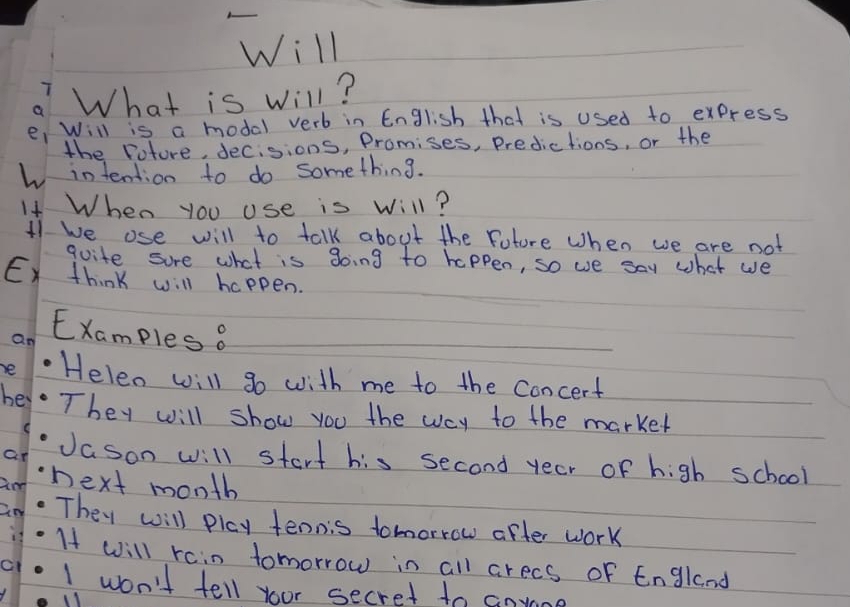 Will
What is will?
Will is a modal verb in English that is used to express
the future, decisions, Promises, Predictions, or the
intention to do something.
When you use is will?
We use will to talk about the future when we are not
quite sure what is going to happen, so we say what we
think will happen.
Examples:
• Helen will go with me to the concert
• They will show you the way to the market
• Jason will start his second year of high school
• next month
• They will play tennis tomorrow after work
• It will rain tomorrow in all areas of England
• I won't tell your secret to anyone